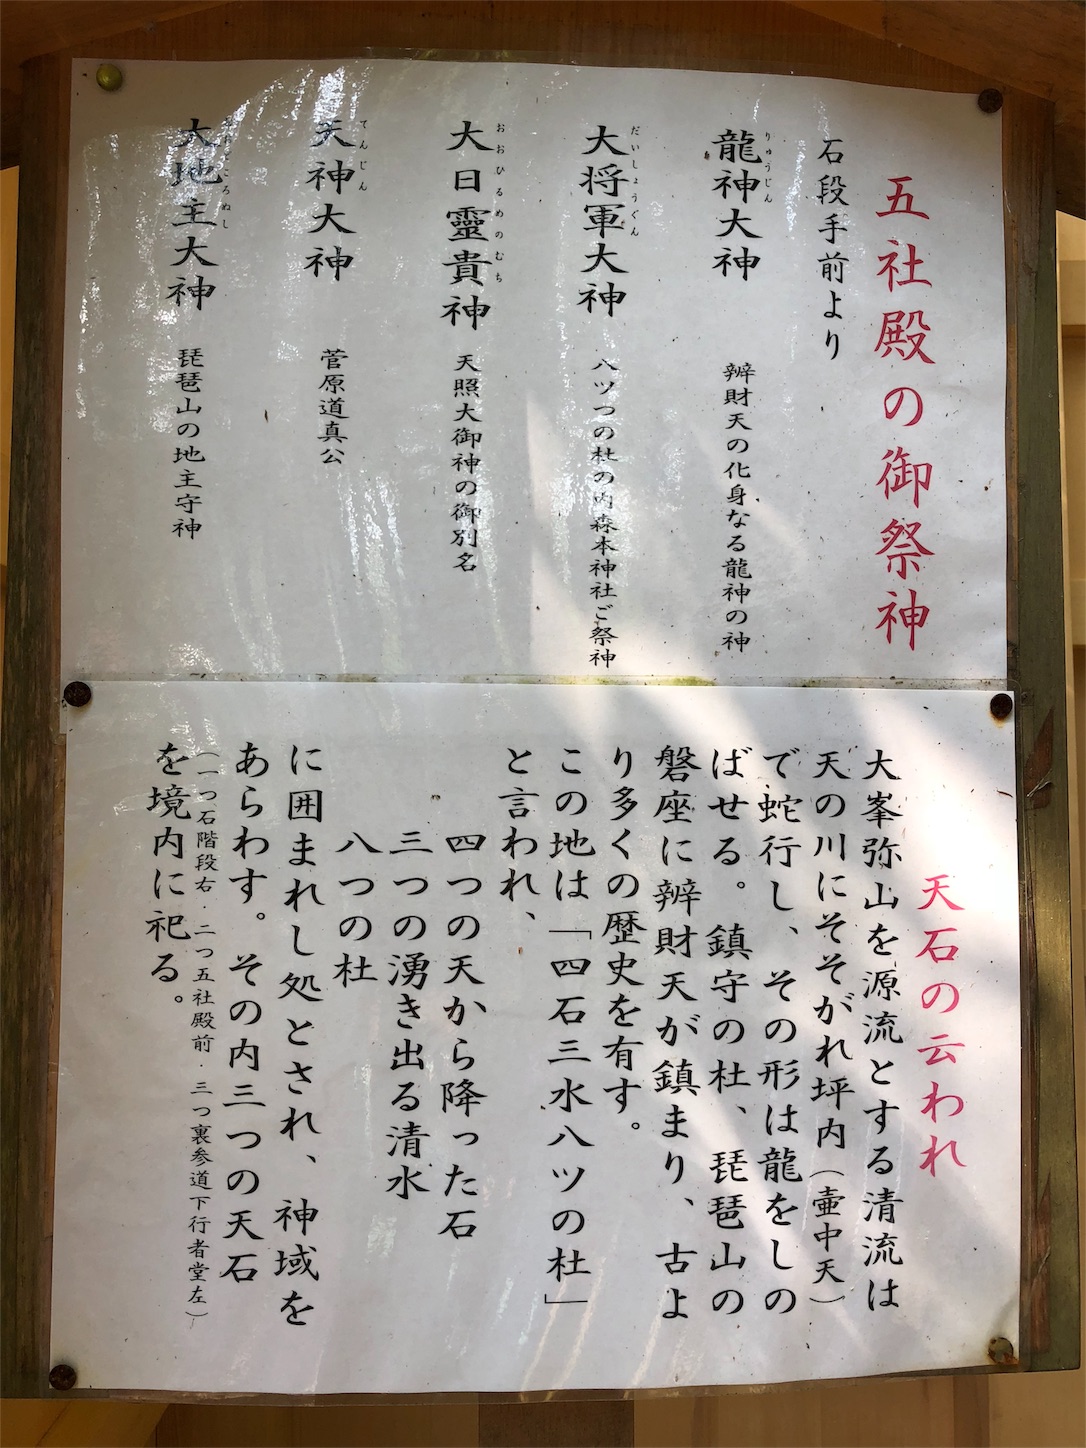 五社殿の御祭神
石段手前より
龍神大神
りゅうじん
辨財天の化身なる龍神の神
大将軍大神
だいしょうぐん
八ツつの杜の内森本神社ご祭神
大日靈貴神
おおひるめのむち
天照大御神の御別名
天神大神
てんじん
菅原道真公
大地主大神
琵琶山の地主守神
天石の云われ
大峯弥山を源流とする清流は
天の川にそそがれ坪内(壷中天)
で蛇行し、その形は龍をしの
ばせる。鎮守の杜、琵琶山の
磐座に辨財天が鎮まり、古よ
り多くの歴史を有す。
この地は「四石三水八ツの杜」
と言われ、
四つの天から降った石
三つの湧き出る清水
八つの杜
に囲まれし処とされ、神域を
あらわす。その内三つの天石
(一つ石階段右・二つ五社殿前・三つ裏参道下行者堂左)
を境内に祀る。